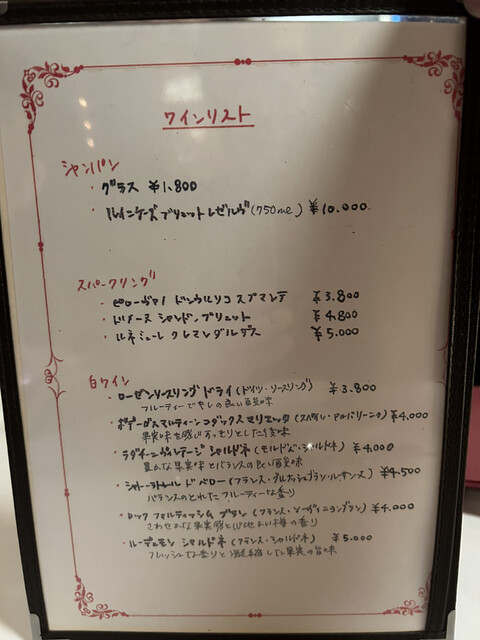 ワインリスト
シャンパン
・グラス ¥1,800
ブリュット レゼルヴ(750ml) ¥10,000
スパークリング
・ピローヴァノ ドンウルリコ スプマンテ ¥3,800
・ドメーヌ シャンドン ブリュット ¥4,800
・ルネミューレ クレマンダルザス ¥5,000
白ワイン
・ローゼンリースリング ドライ(ドイツ・リースリング) ¥3,800
フルーティーでやしの良い
・ボデーガス マルティーンコダックス マリエッタ(スペイン・アルバリーニョ) ¥4,000
果実味を感じすっきりとした後味
・ラダチーニヴィンテージ シャルドネ(モルドバ・シャルドネ) ¥4,000
豊んな果実味とバランスの良い酸味
・シャトー ド ベロー(フランス・グルナッシュブラン・ルーサンヌ) ¥4,500
バランスのとれたフルーティーな香り
・ロック フォルティッシム ブラン(フランス・ソーヴィニヨンブラン) ¥4,000
さわやかな果実感と心地よい樽の香り
・ルーデュモン シャルドネ(フランス・シャルドネ) ¥5,000
フレッシュな香りと凝縮した果実の旨味